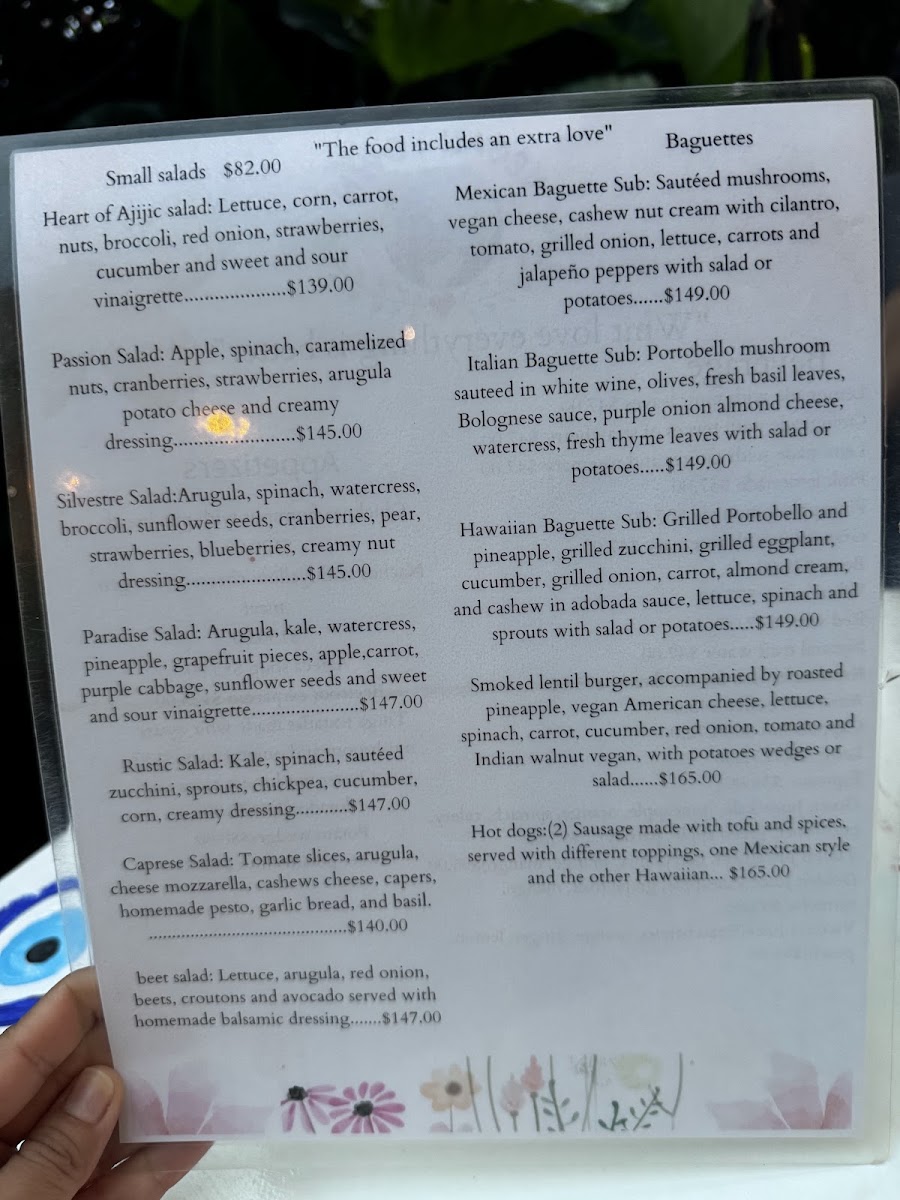 "The food includes an extra love"
Small salads $82.00
Heart of Ajijic salad: Lettuce, corn, carrot,
nuts, broccoli, red onion, strawberries,
cucumber and sweet and sour
vinaigrette.....................$139.00
Passion Salad: Apple, spinach, caramelized
nuts, cranberries, strawberries, arugula
potato cheese and creamy
dressing.........................$145.00
Silvestre Salad:Arugula, spinach, watercress,
broccoli, sunflower seeds, cranberries, pear,
strawberries, blueberries, creamy nut
dressing........................$145.00
Paradise Salad: Arugula, kale, watercress,
pineapple, grapefruit pieces, apple,carrot,
purple cabbage, sunflower seeds and sweet
and sour vinaigrette......................$147.00
Rustic Salad: Kale, spinach, sautéed
zucchini, sprouts, chickpea, cucumber,
corn, creamy dressing...........$147.00
Caprese Salad: Tomate slices, arugula,
cheese mozzarella, cashews cheese, capers,
homemade pesto, garlic bread, and basil.
..........................................$140.00
beet salad: Lettuce, arugula, red onion,
beets, croutons and avocado served with
homemade balsamic dressing.......$147.00
Baguettes
Mexican Baguette Sub: Sautéed mushrooms,
vegan cheese, cashew nut cream with cilantro,
tomato, grilled onion, lettuce, carrots and
jalapeño peppers with salad or
potatoes......$149.00
Italian Baguette Sub: Portobello mushroom
sauteed in white wine, olives, fresh basil leaves,
Bolognese sauce, purple onion almond cheese,
watercress, fresh thyme leaves with salad or
potatoes.....$149.00
Hawaiian Baguette Sub: Grilled Portobello and
pineapple, grilled zucchini, grilled eggplant,
cucumber, grilled onion, carrot, almond cream,
and cashew in adobada sauce, lettuce, spinach and
sprouts with salad or potatoes.....$149.00
Smoked lentil burger, accompanied by roasted
pineapple, vegan American cheese, lettuce,
spinach, carrot, cucumber, red onion, tomato and
Indian walnut vegan, with potatoes wedges or
salad......$165.00
Hot dogs:(2) Sausage made with tofu and spices,
served with different toppings, one Mexican style
and the other Hawaiian... $165.00